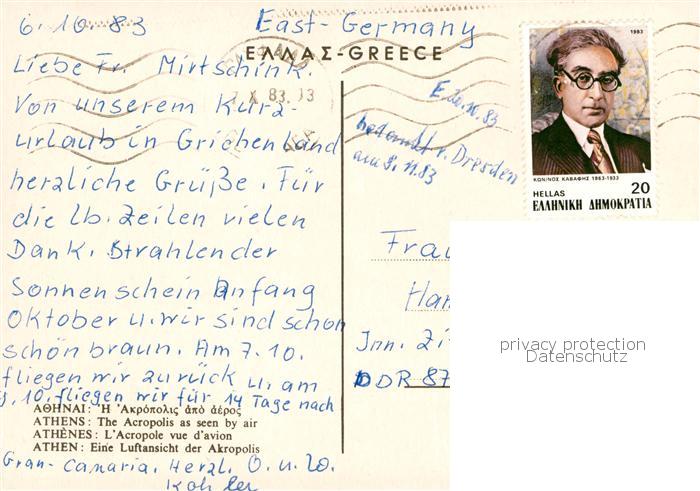 6.10.83
East-Germany
ΕΛΛΑΣ-GREECE
Liebe Fr. Mirtschink.
Von unserem Kurz-
urlaub in Grichenland
herzliche Grüße. Für
die lb. Zeilen vielen
Dank. Strahlender
Sonnenschein Anfang
Oktober u. wir sind schon
schön braun. Am 7.10.
fliegen wir zurück u. am
9.10. fliegen wir für 14 Tage nach
Gran-Canaria. Herzl. O. u. W.
ΑΘΗΝΑΙ: Ἡ Ἀκρόπολις ἀπὸ ἀέρος
ATHENS: The Acropolis as seen by air
ATHÈNES: L'Acropole vue d'avion
ATHEN: Eine Luftansicht der Akropolis
X 83.13
E. 20.11.83
v. Dresden
am 9.11.83
1983
ΚΩΝ/ΝΟΣ ΚΑΒΑΦΗΣ 1863-1933
HELLAS 20
ΕΛΛΗΝΙΚΗ ΔΗΜΟΚΡΑΤΙΑ
Frau
Han
Inn. Zi
DDR 87
privacy protection
Datenschutz